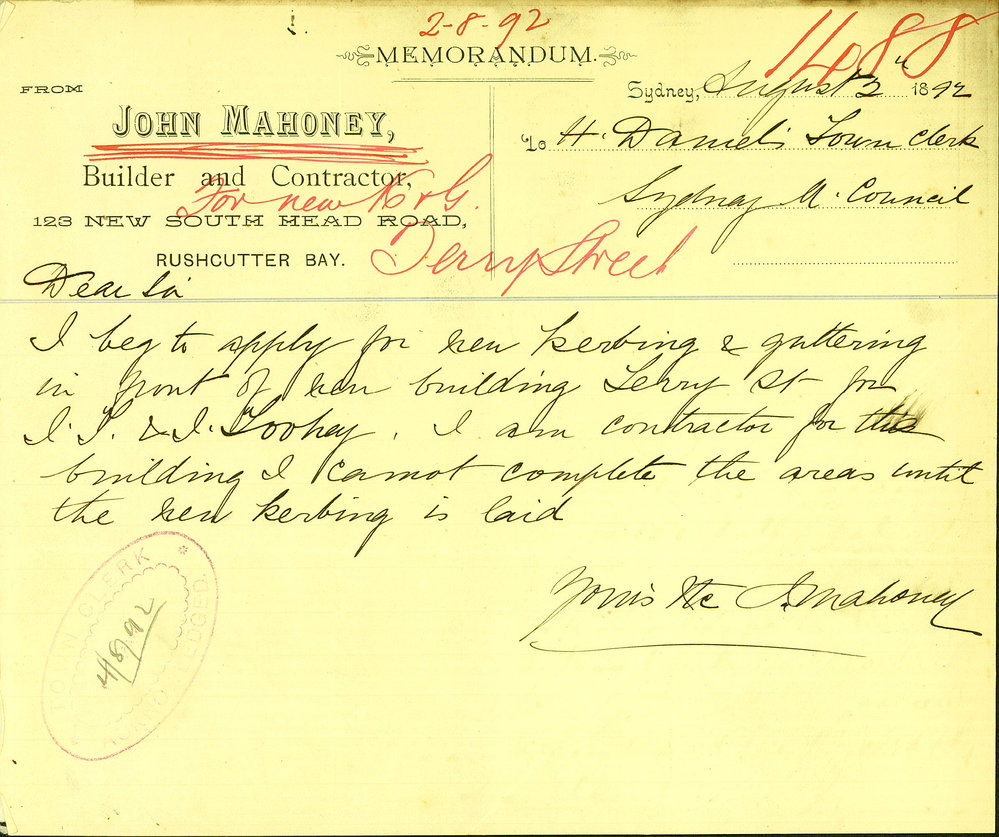 2-8-92
1488
MEMORANDUM.
FROM
JOHN MAHONEY,
Builder and Contractor,
For new K & G.
123 NEW SOUTH HEAD ROAD,
RUSHCUTTER BAY.
Terry Street
Sydney, August 2 1892
To H. Daniels Town Clerk
Sydney M. Council
Dear Sir
I beg to apply for new kerbing & guttering
in front of new building Terry St for
J. T. & J. Toohey. I am contractor for this
building I cannot complete the areas until
the new kerbing is laid
Yours &c J. Mahoney
TOWN CLERK
ACKNOWLEDGED
4/8/92